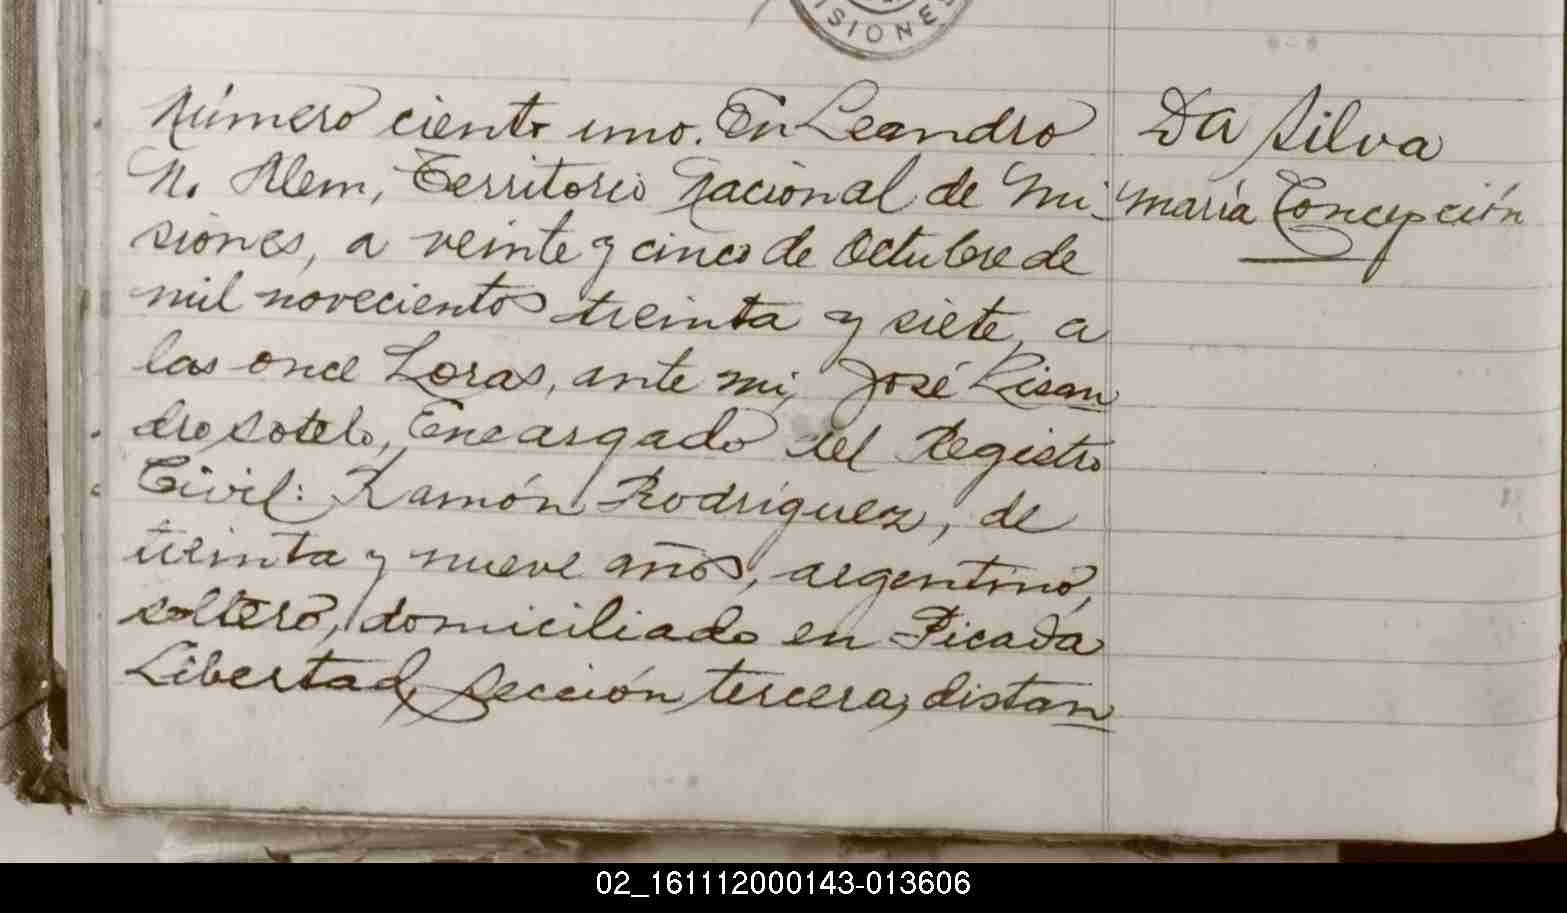 SIONE
Número ciento uno. En Leandro
N. Alem, Territorio Nacional de Mi-
siones, a veinte y cinco de Octubre de
mil novecientos treinta y siete, a
las once horas, ante mi, José Lisan
dro Sotelo, Encargado del Registro
Civil: Ramón Rodríguez, de
treinta y nueve años, argentino,
soltero, domiciliado en Picada
Libertad, Sección tercera, distan
Da Silva
María Concepción
02_161112000143-013606